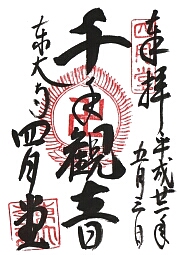 奉拝
平成廿一年
五月三日
千手觀音
東大寺
四月堂
四月堂